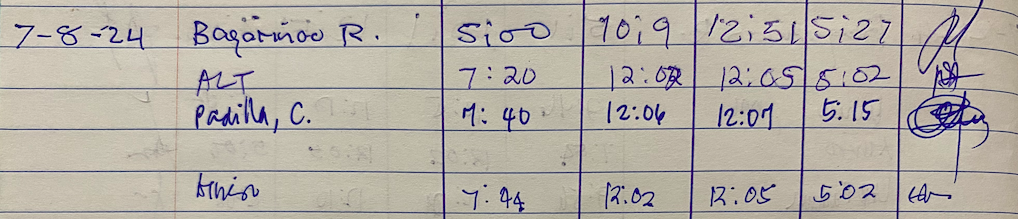 7-8-24 Bagarinao R. 5:00 10:9 12:51 5:27
ALT 7:20 12:02 12:05 5:02
Padilla, C. 7:40 12:06 12:07 5:15
7:44 12:02 12:05 5:02